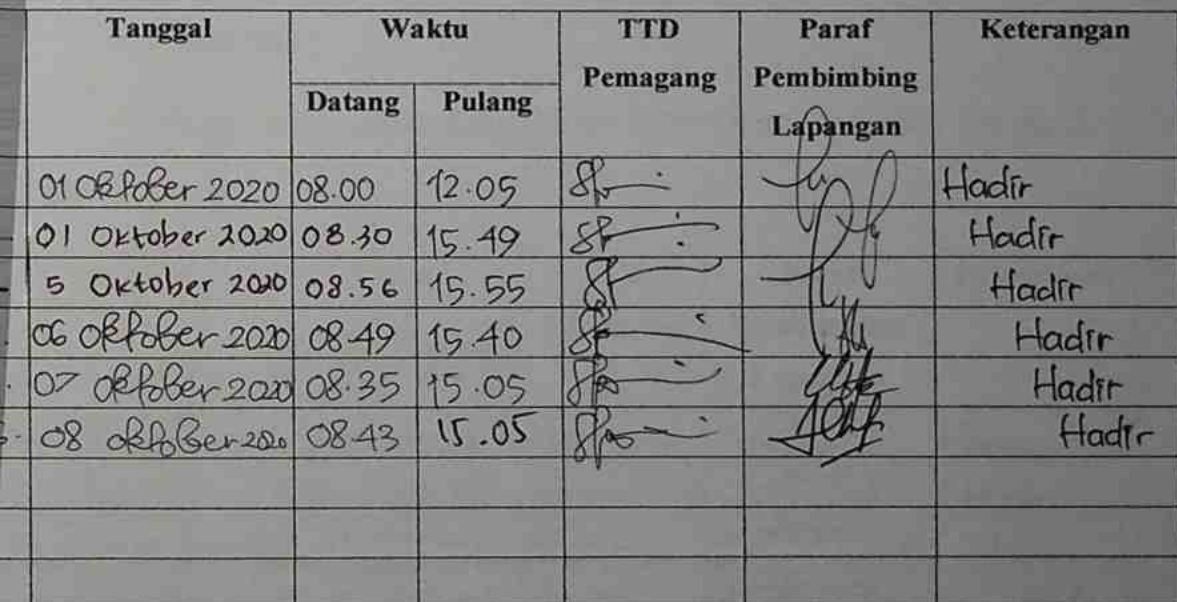 Tanggal Waktu TTD Paraf Keterangan
Pemagang Pembimbing
Datang Pulang Lapangan
01 Oktober 2020 08.00 12.05 Hadir
01 Oktober 2020 08.30 15.49 Hadir
5 Oktober 2020 08.56 15.55 Hadir
06 Oktober 2020 08.49 15.40 Hadir
07 Oktober 2020 08.35 15.05 Hadir
08 Oktober 2020 08.43 15.05 Hadir